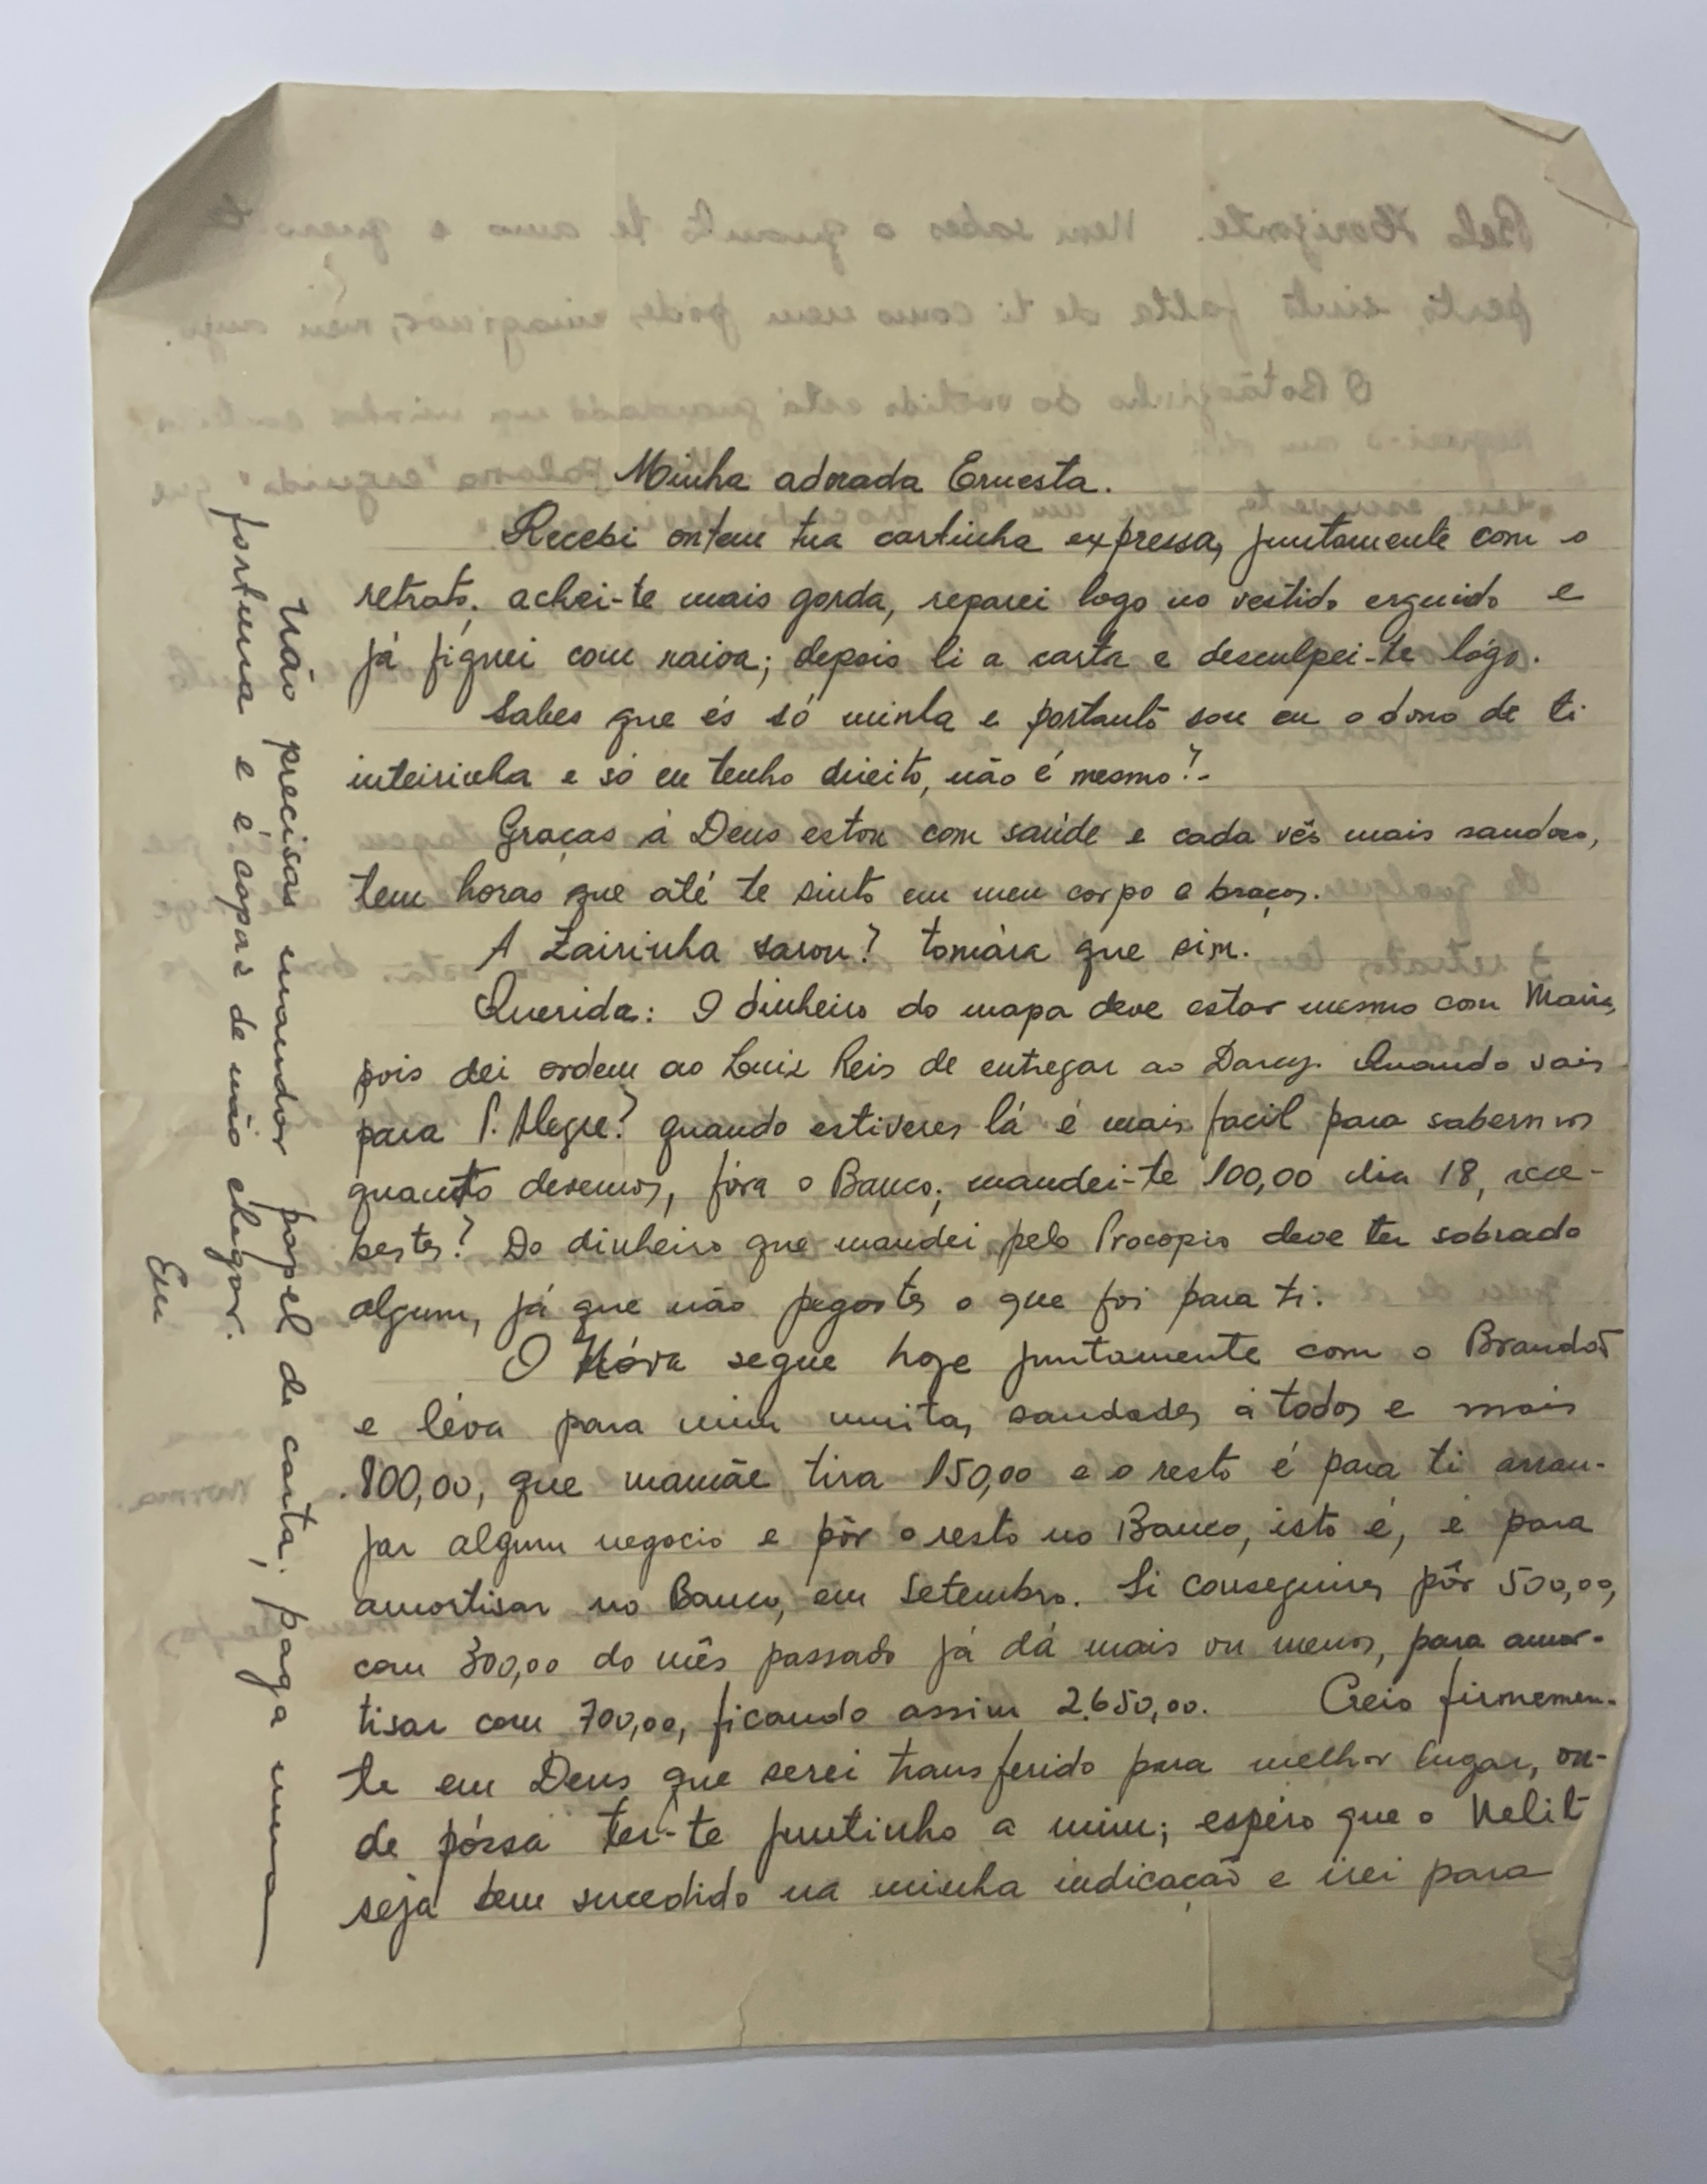 Minha adorada Ernesta.
Recebi ontem tua cartinha expressa, juntamente com o
retrato. achei-te mais gorda, reparei logo no vestido erguido e
já fiquei com raiva; depois li a carta e desculpei-te lógo.
Sabes que és só minha e portanto sou eu o dono de ti
inteirinha e só eu tenho direito, não é mesmo?-
Graças á Deus estou com saúde e cada vês mais saudoso,
tem horas que até te sinto em meu corpo e braços.
A Zairinha sarou? tomára que sim.
Querida: O dinheiro do mapa deve estar mesmo com
pois dei ordem ao Luiz Reis de entregar ao Darcy. Quando vais
para P. Alegre? quando estiveres lá é mais facil para sabermos
quanto devemos, fóra o Banco; mandei-te 100,00 dia 18, rece-
bestes? Do dinheiro que mandei pelo Procopio deve ter sobrado
algum, já que não pegastes o que foi para ti.
O segue hoje juntamente com o Brandão
e léva para mim muitas saudades á todos e mais
800,00, que mamãe tira 150,00 e o resto é para ti arran-
jar algum negocio e pôr o resto no Banco, isto é, é para
amortisar no Banco, em Setembro. Si conseguires pôr 500,00,
com 300,00 do mês passado já dá mais ou menos, para amor-
tisar com 700,00, ficando assim 2.650,00. Creio firmemen-
te em Deus que serei transferido para melhor lugar, on-
de póssa ter-te juntinho a mim; espéro que o Nelit
seja bem sucedido na minha indicação e irei para
Não precisas mandar papel de carta, paga uma
fortuna e é capas de não chegar.
Eu
Belo Horizonte. Nem sabes o quanto te amo e quero-te
perto, sinto falta de ti como nem podes imaginar, meu anjo.
O Botãozinho do vestido está guardado na minha carteira